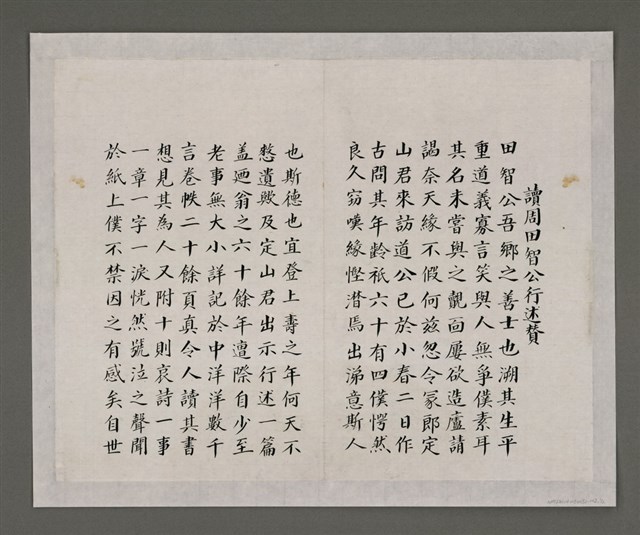 讀周田智公行述贅
田智公吾鄉之善士也溯其生平
重道義寡言笑與人無爭僕素耳
其名未嘗與之覿面屢欲造廬請
謁奈天緣不假何茲忽令冢郎定
山君來訪道公已於小春二日作
古問其年齡祇六十有四僕愕然
良久窃嘆緣慳潸焉出涕意斯人
也斯德也宜登上壽之年何天不
憖遺歟及定山君出示行述一篇
盖廼翁之六十餘年遭際自少至
老事無大小詳記於中洋洋數千
言卷帙二十餘頁真令人讀其書
想見其為人又附十則哀詩一事
一章一字一淚恍然號泣之聲聞
於紙上僕不禁因之有感矣自世